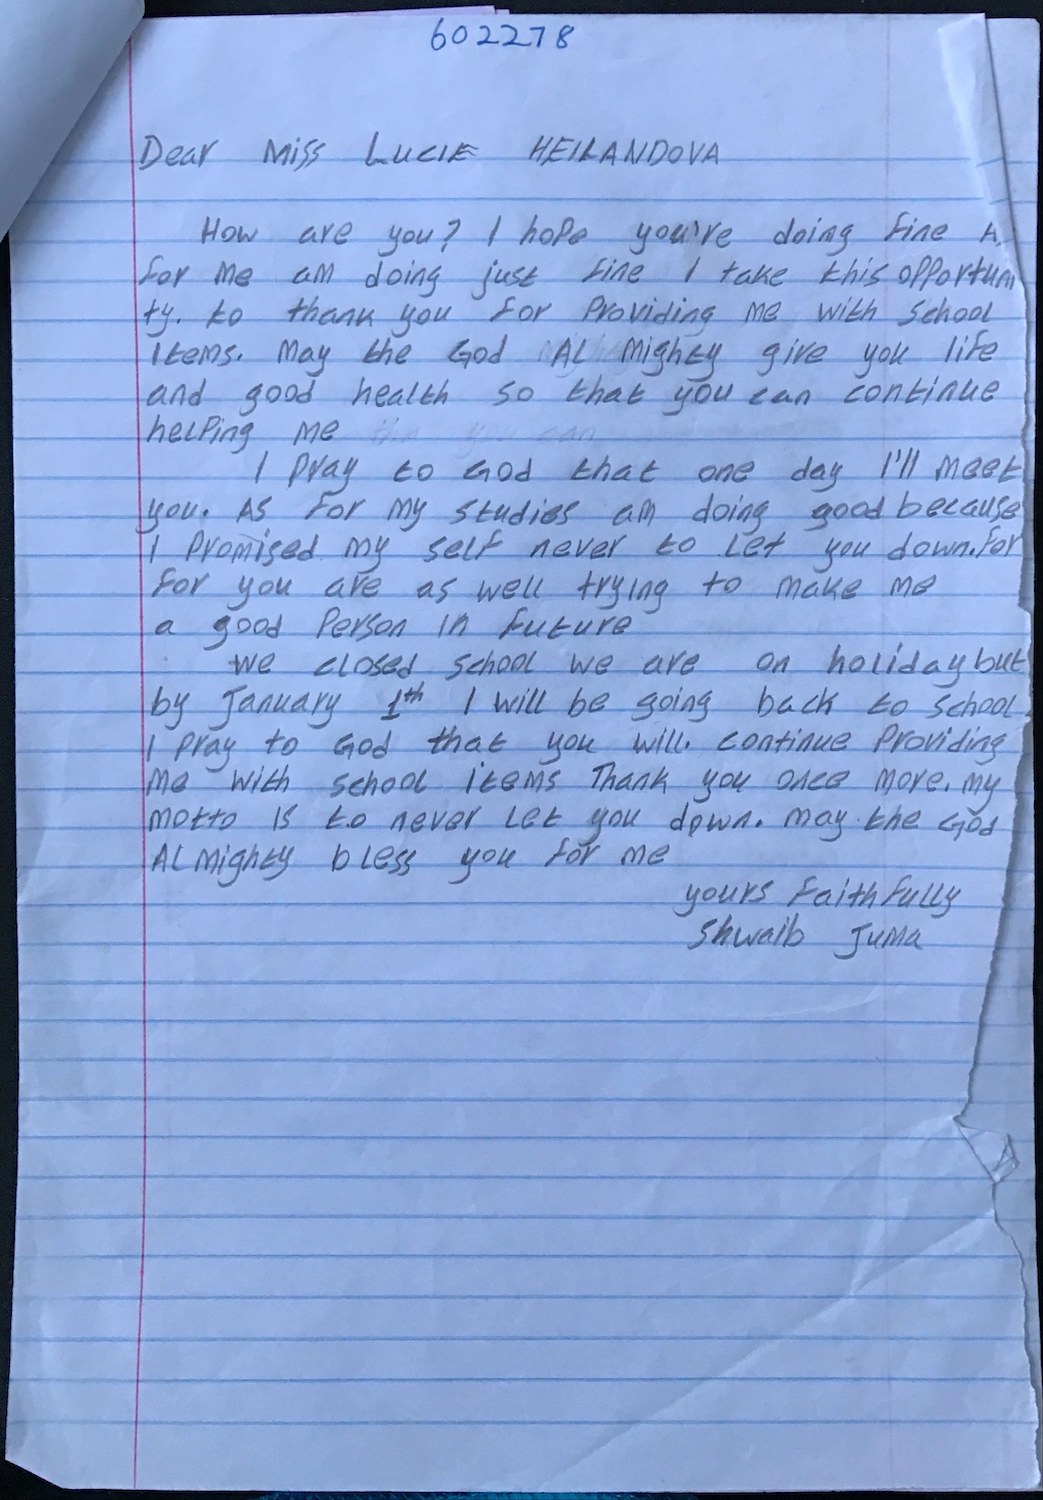 602278
Dear Miss LUCIE HEILANDOVA
How are you? I hope you're doing fine A
for me am doing just fine I take this opportuni
ty. to thank you for Providing me with School
Items. May the God AL Mighty give you life
and good health so that you can continue
helping me
I pray to God that one day I'll meet
you. As for my studies am doing good because
I promised my self never to let you down. for
for you are as well trying to make me
a good Person in future
We closed school we are on holiday but
by January 1th I will be going back to school
I pray to God that you will. continue Providing
me with school items Thank you once more. my
motto is to never let you down. may the God
AL Mighty bless you for me
yours faithfully
Shwaib Juma